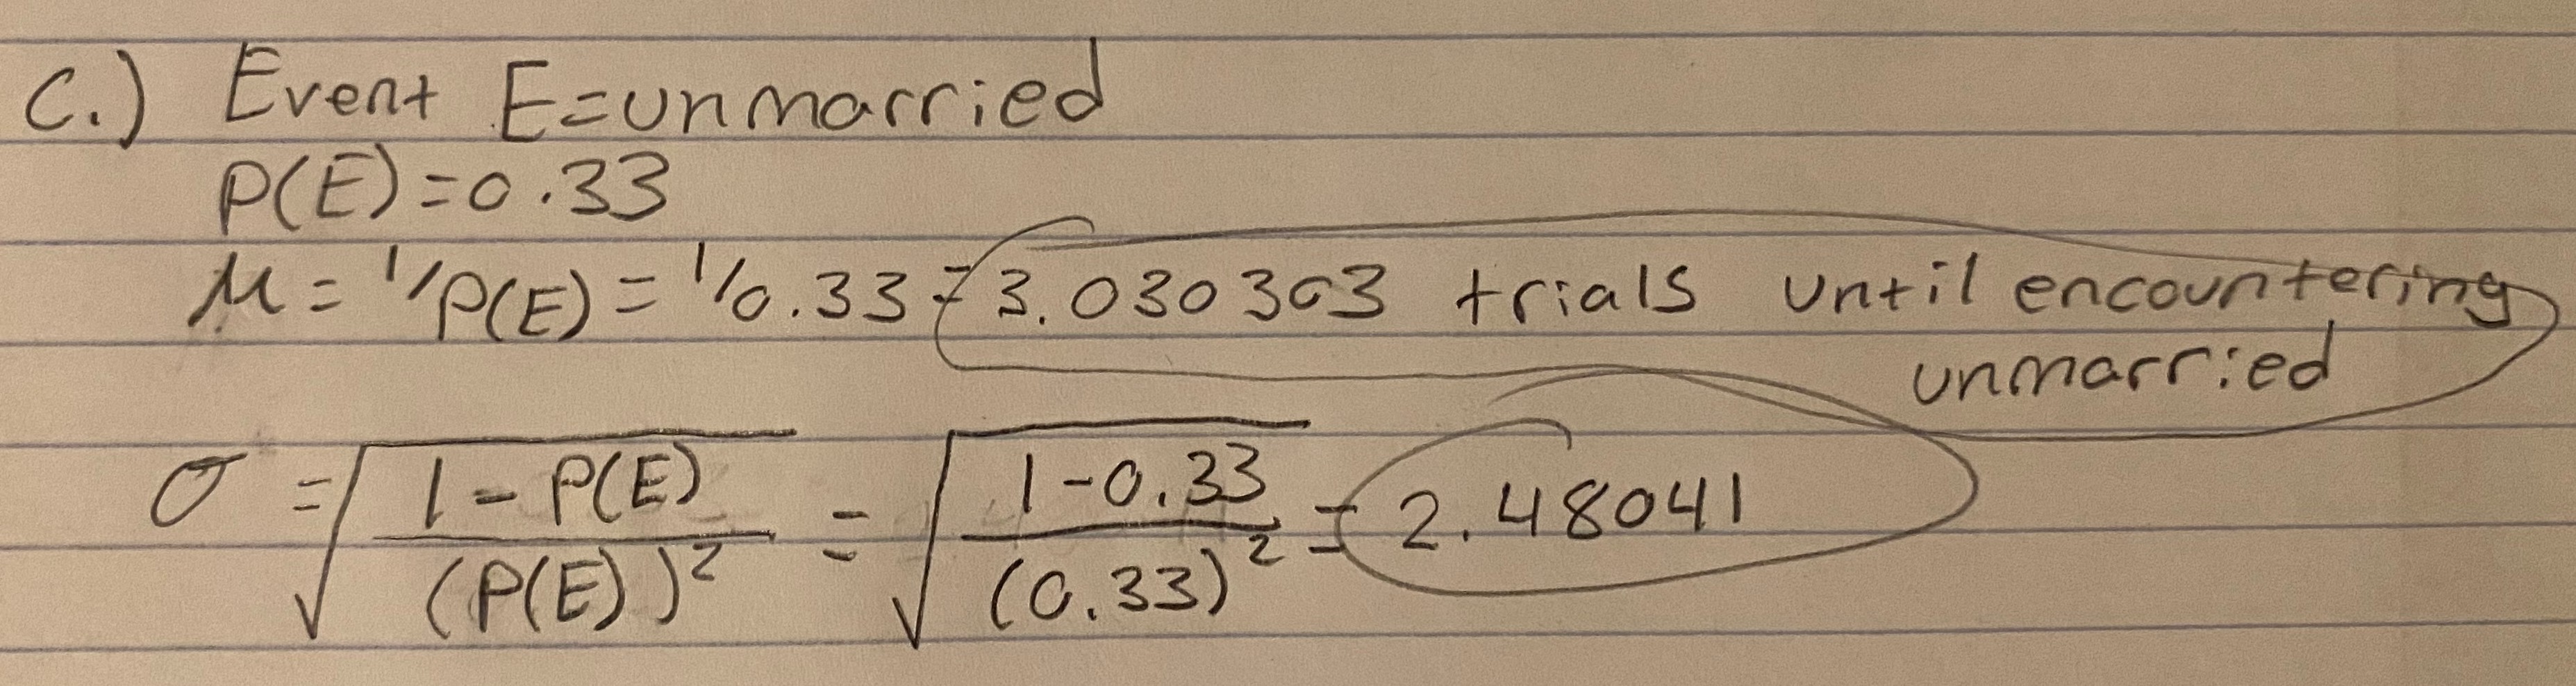 C.) Event E=unmarried
P(E)=0.33
μ = 1/P(E) = 1/0.33 = 3.030303 trials until encountering
unmarried
σ = √((1-P(E))/(P(E))²) = √((1-0.33)/(0.33)²) = 2.48041